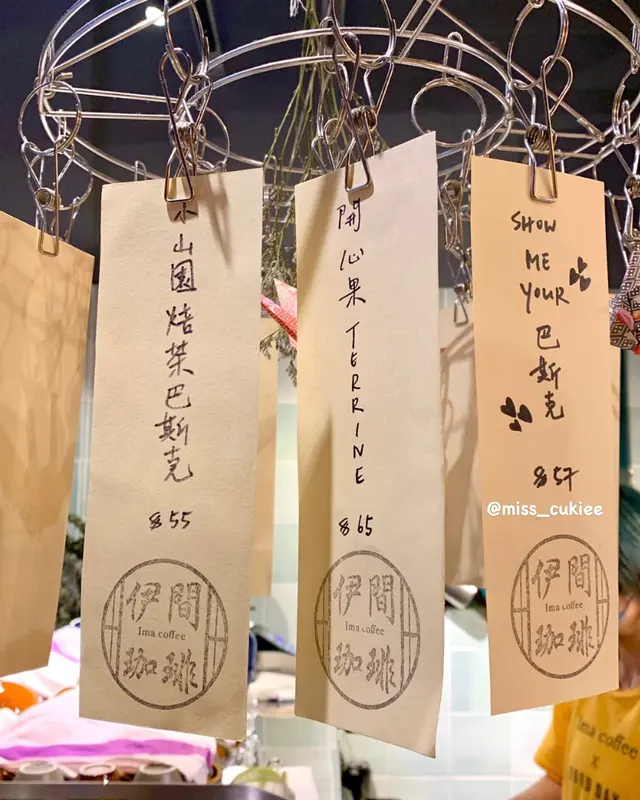 小山園焙茶巴斯克
$55
伊間
Ima coffee
珈琲
開心果 TERRINE
$65
伊間
Ima coffee
珈琲
SHOW
ME
YOUR
巴斯克
$57
@miss_cukiee
伊間
Ima coffee
珈琲
Ima coffee
X